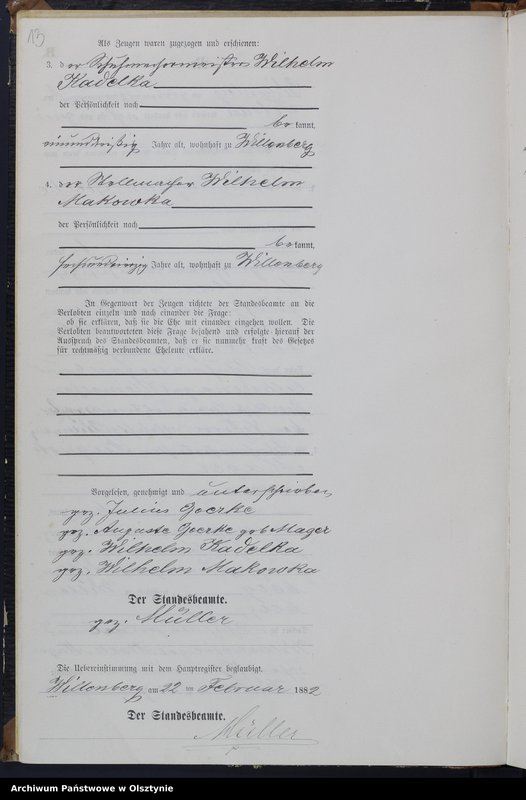 13
Als Zeugen waren zugezogen und erschienen:
3. der Schuhmachermeister Wilhelm
Kadelka
der Persönlichkeit nach
be kannt,
neununddreißig Jahre alt, wohnhaft zu Willenberg
4. der Stellmacher Wilhelm
Makowka
der Persönlichkeit nach
be kannt,
sechsundvierzig Jahre alt, wohnhaft zu Willenberg
In Gegenwart der Zeugen richtete der Standesbeamte an die
Verlobten einzeln und nach einander die Frage:
ob sie erklären, daß sie die Ehe mit einander eingehen wollen. Die
Verlobten beantworteten diese Frage bejahend und erfolgte hierauf der
Ausspruch des Standesbeamten, daß er sie nunmehr kraft des Gesetzes
für rechtmäßig verbundene Eheleute erkläre.
Vorgelesen, genehmigt und unterschrieben
gez. Julius Goerke
gez. Auguste Goerke geb Mager
gez. Wilhelm Kadelka
gez. Wilhelm Makowka
Der Standesbeamte.
gez. Müller
Die Uebereinstimmung mit dem Hauptregister beglaubigt.
Willenberg am 22 ten Februar 1882
Der Standesbeamte.
Müller
Archiwum Państwowe w Olsztynie